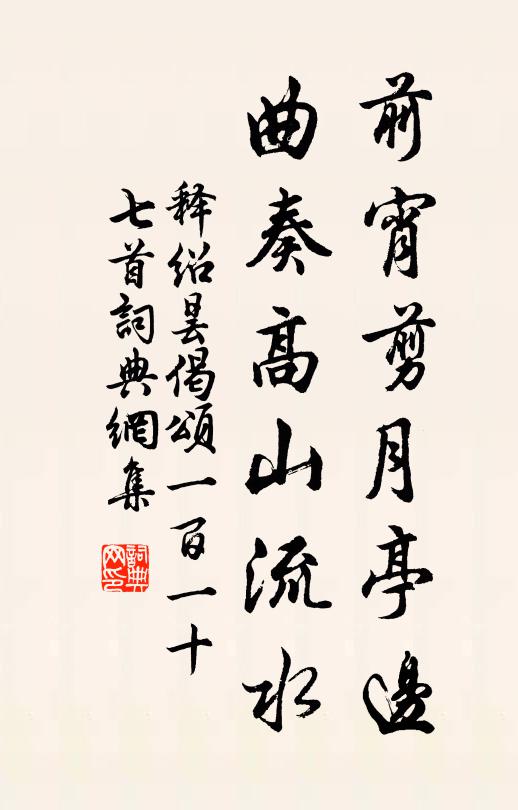 前宵剪月亭邊
曲奏高山流水
释绍昙偈頌一百一十
七首詞典網集
詞典网印